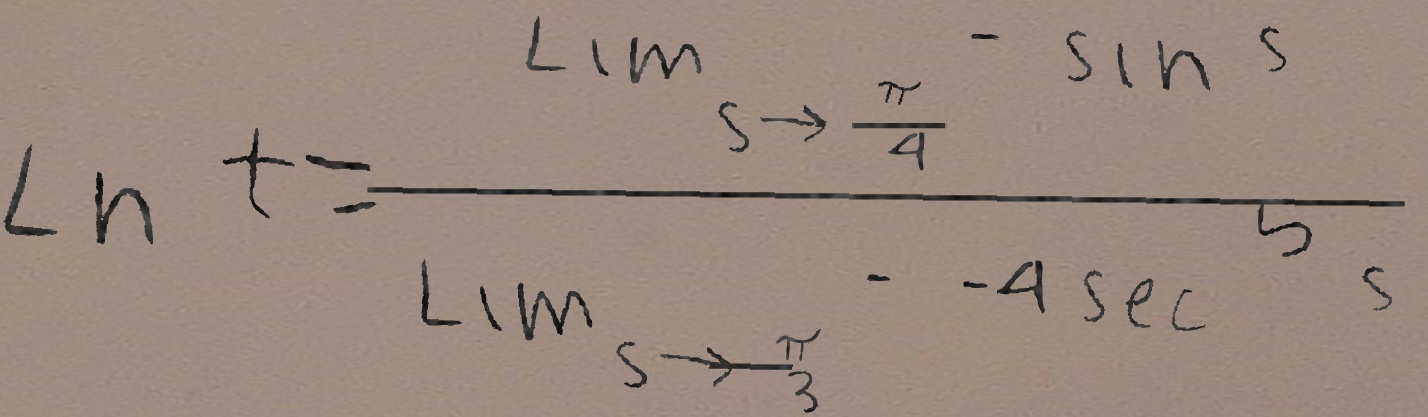 Ln t = \frac{Lim_{s \to \frac{\pi}{4}^{-}} sin s}{Lim_{s \to \frac{\pi}{3}^{-}} -4 sec^{5} s}